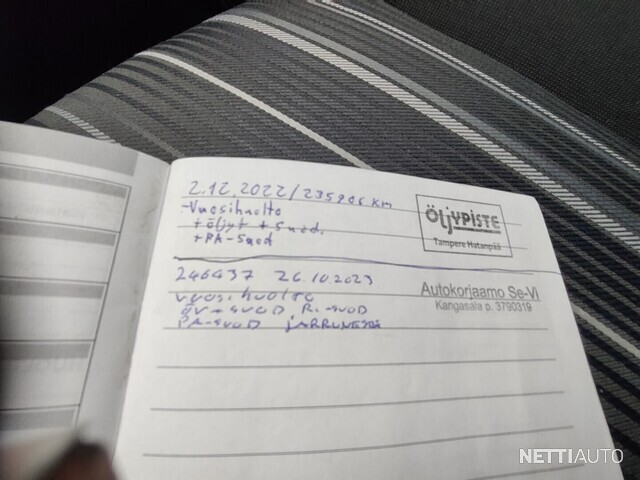 2.12.2022/235906 KM
-Vuosihuolto
+öljyt + Suod.
+PA-Suod
ÖLJYPISTE
Tampere Hatanpää
246437 26.10.2023
VUOSIHUOLTO
ÖV+SUOD R.-SUOD
PA-SUOD JARRUNESTE
Autokorjaamo Se-Vi
Kangasala p. 3790319
NETTIAUTO